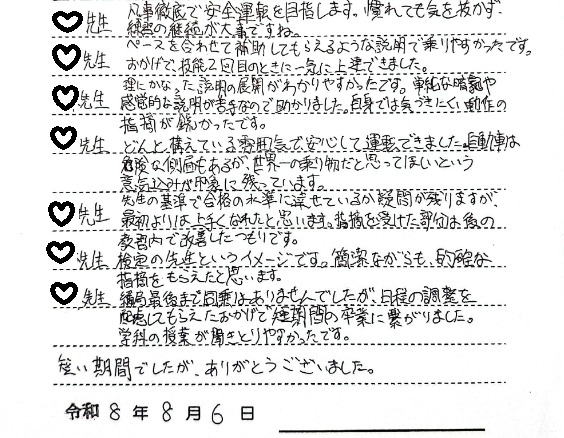 凡事徹底で安全運転を目指します。慣れても気を抜かず、
先生 練習の継続が大事ですね。
ペースを合わせて補助してもらえるような説明で乗りやすかったです。
先生 おかげで、技能2回目のときに一気に上達できました。
理にかなった説明の展開がわかりやすかったです。単純な暗記や
先生 感覚的な説明が苦手なので助かりました。自身では気づきにくい動作の
指摘が鋭かったです。
先生 どんと構えている雰囲気で安心して運転できました。自動車は
危険な側面もあるが、世界一の乗り物だと思ってほしいという
意気込みが印象に残っています。
先生の基準で合格の水準に達せているか疑問が残りますが、
先生 最初よりは上手くなれたと思います。指摘を受けた部分は後の
教習内で改善したつもりです。
先生 検定の先生というイメージです。簡潔ながらも、的確な
指摘をもらえたと思います。
先生 結局最後まで同乗はありませんでしたが、日程の調整を
配慮してもらえたおかげで短期間の卒業に繋がりました。
学科の授業が聞きとりやすかったです。
短い期間でしたが、ありがとうございました。
令和 8 年 8 月 6 日